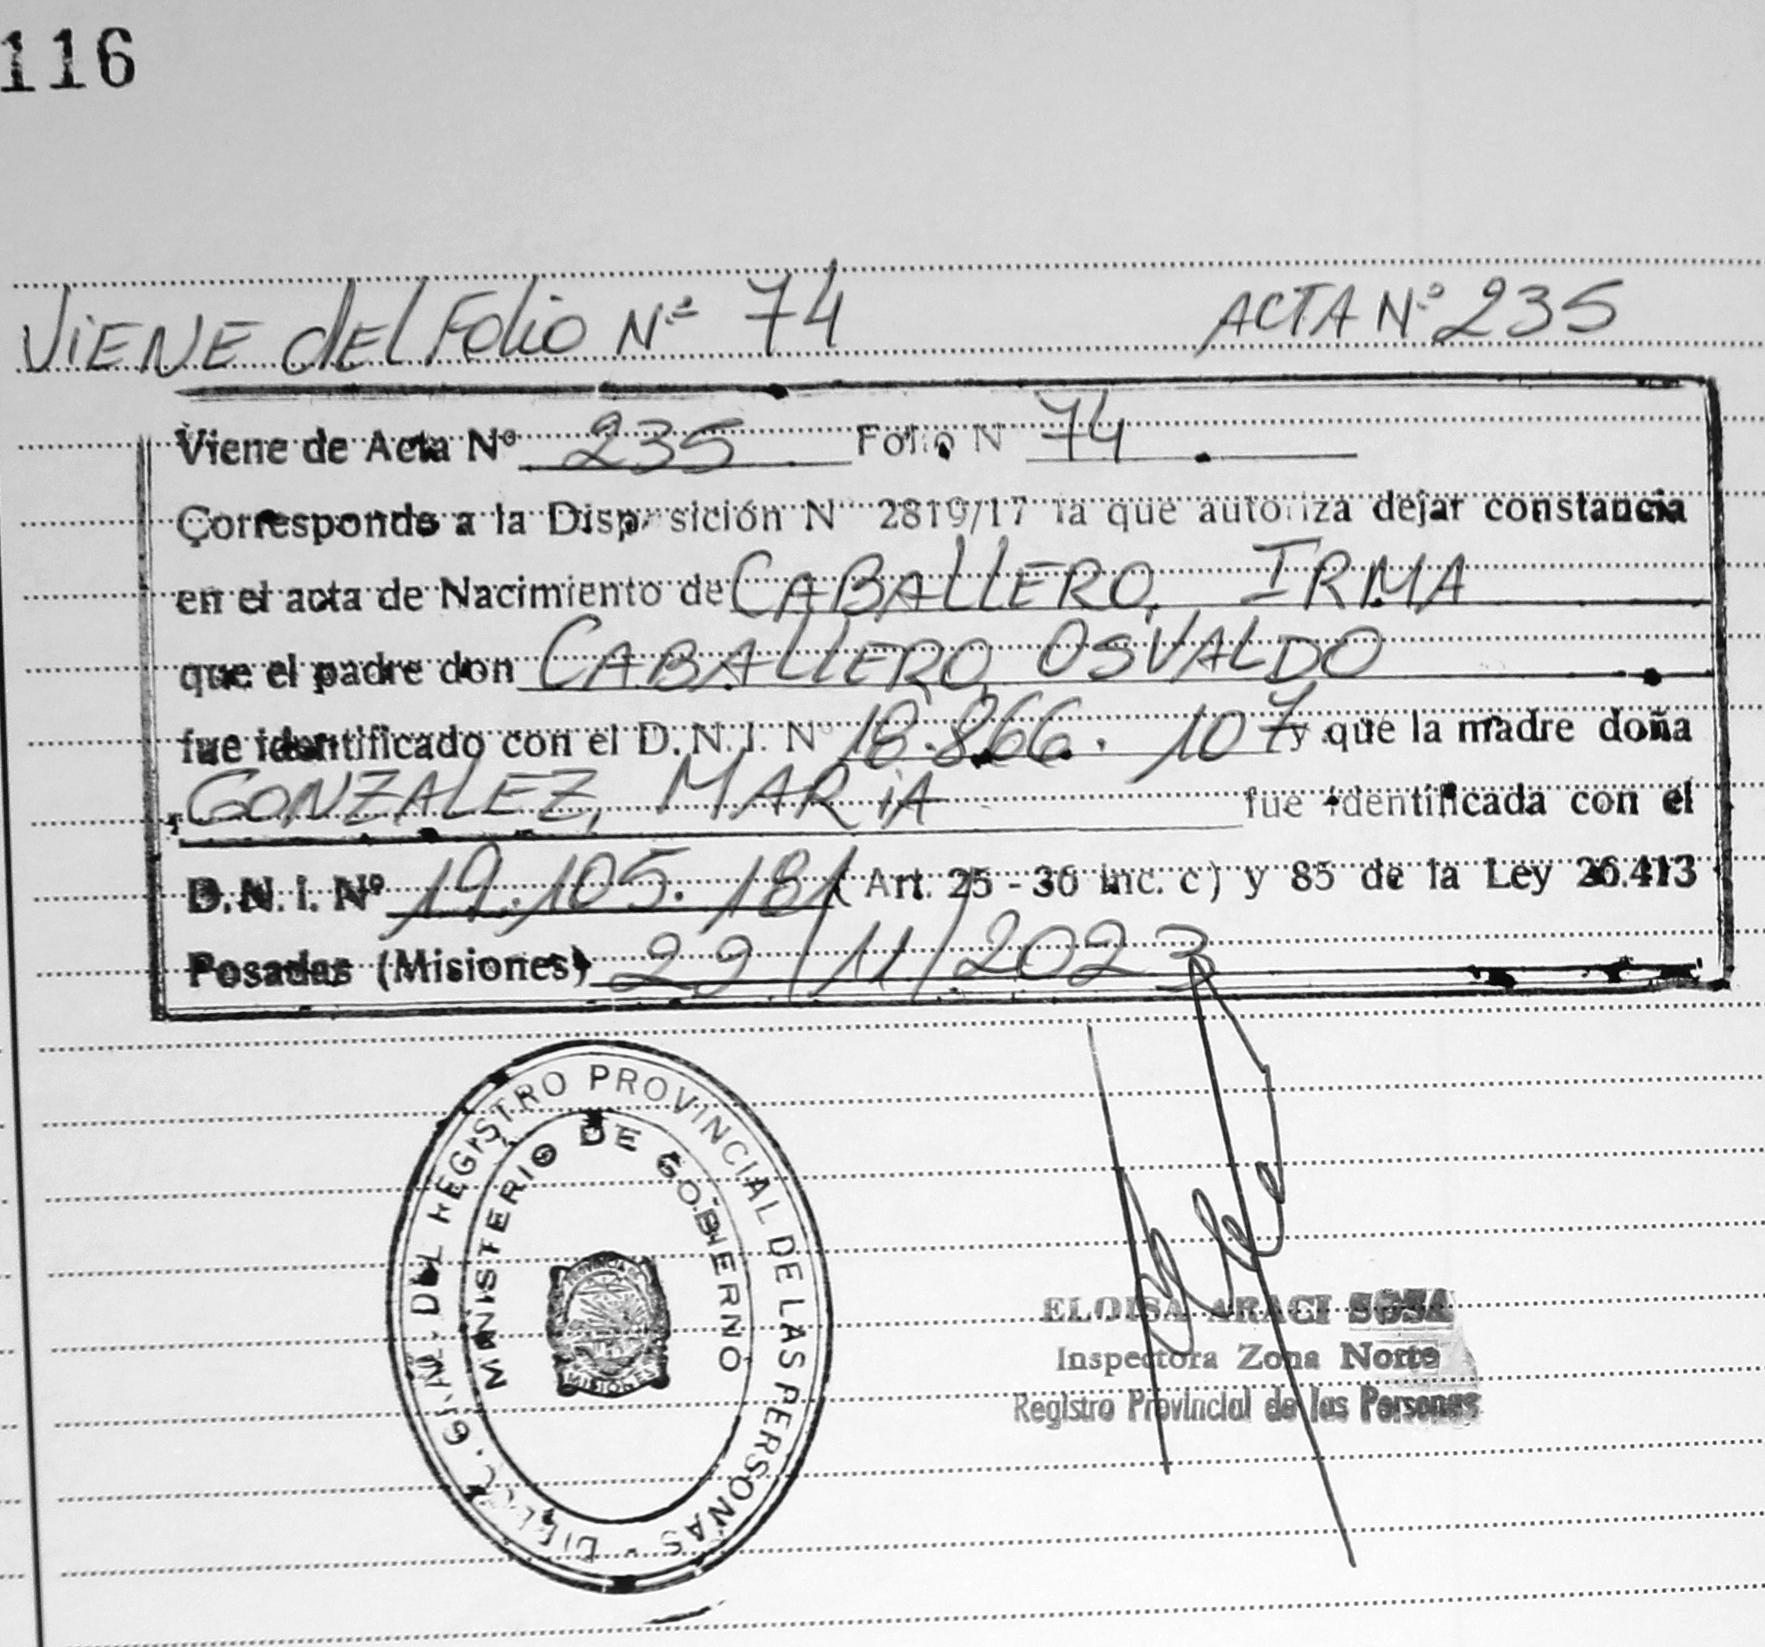 116
VIENE del Folio Nº 74 ACTA Nº 235
Viene de Acta Nº 235 Folio N 74
Corresponde a la Disposición Nº 2819/17 la que autoriza dejar constancia
en el acta de Nacimiento de CABALLERO, IRMA
que el padre don CABALLERO, OSVALDO
fue identificado con el D.N.I. Nº 18.866.107 y que la madre doña
GONZALEZ, MARiA fue identificada con el
D.N.I. Nº 19.105.181 (Art. 25 - 36 inc. c) y 85 de la Ley 26.413
Posadas (Misiones) 29/11/2023
DIREC. GRAL. DEL REGISTRO PROVINCIAL DE LAS PERSONAS -
MINISTERIO DE GOBIERNO
PROVINCIA DE
MISIONES
ELOISA ARACI SOSA
Inspectora Zona Norte
Registro Provincial de las Personas